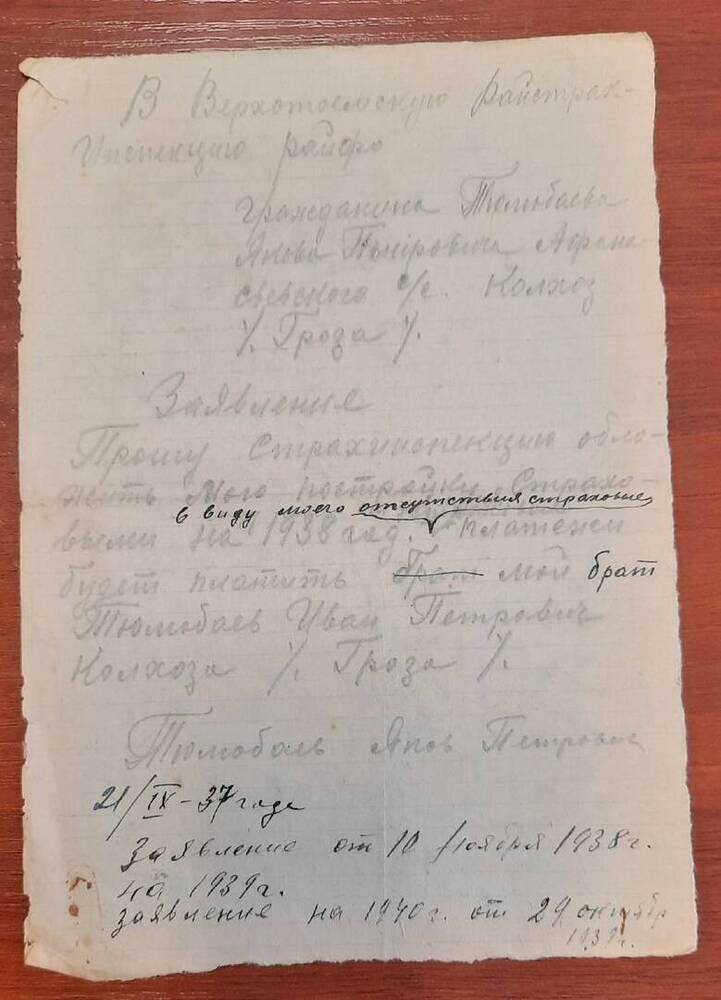 В Верхотоемскую Райстрах-
Инспекцию райфо
Гражданина Тюмбаева
Якова Петровича Афана
сьевского с/с. Колхоз
"/. Гроза "/.
Заявление
Прошу Страхинспекцию обло-
жить мою постройку Страхо-
в виду моего отсутствия страховые
выми на 1938 год. платежи
будет платить брат мой брат
Иван Петрович
Колхоза "/. Гроза "/.
Яков Петрович
21/IX-37 года
Заявление от 10 Ноября 1938г.
на 1939г.
заявление на 1940г. от 29 октябр
1939г.